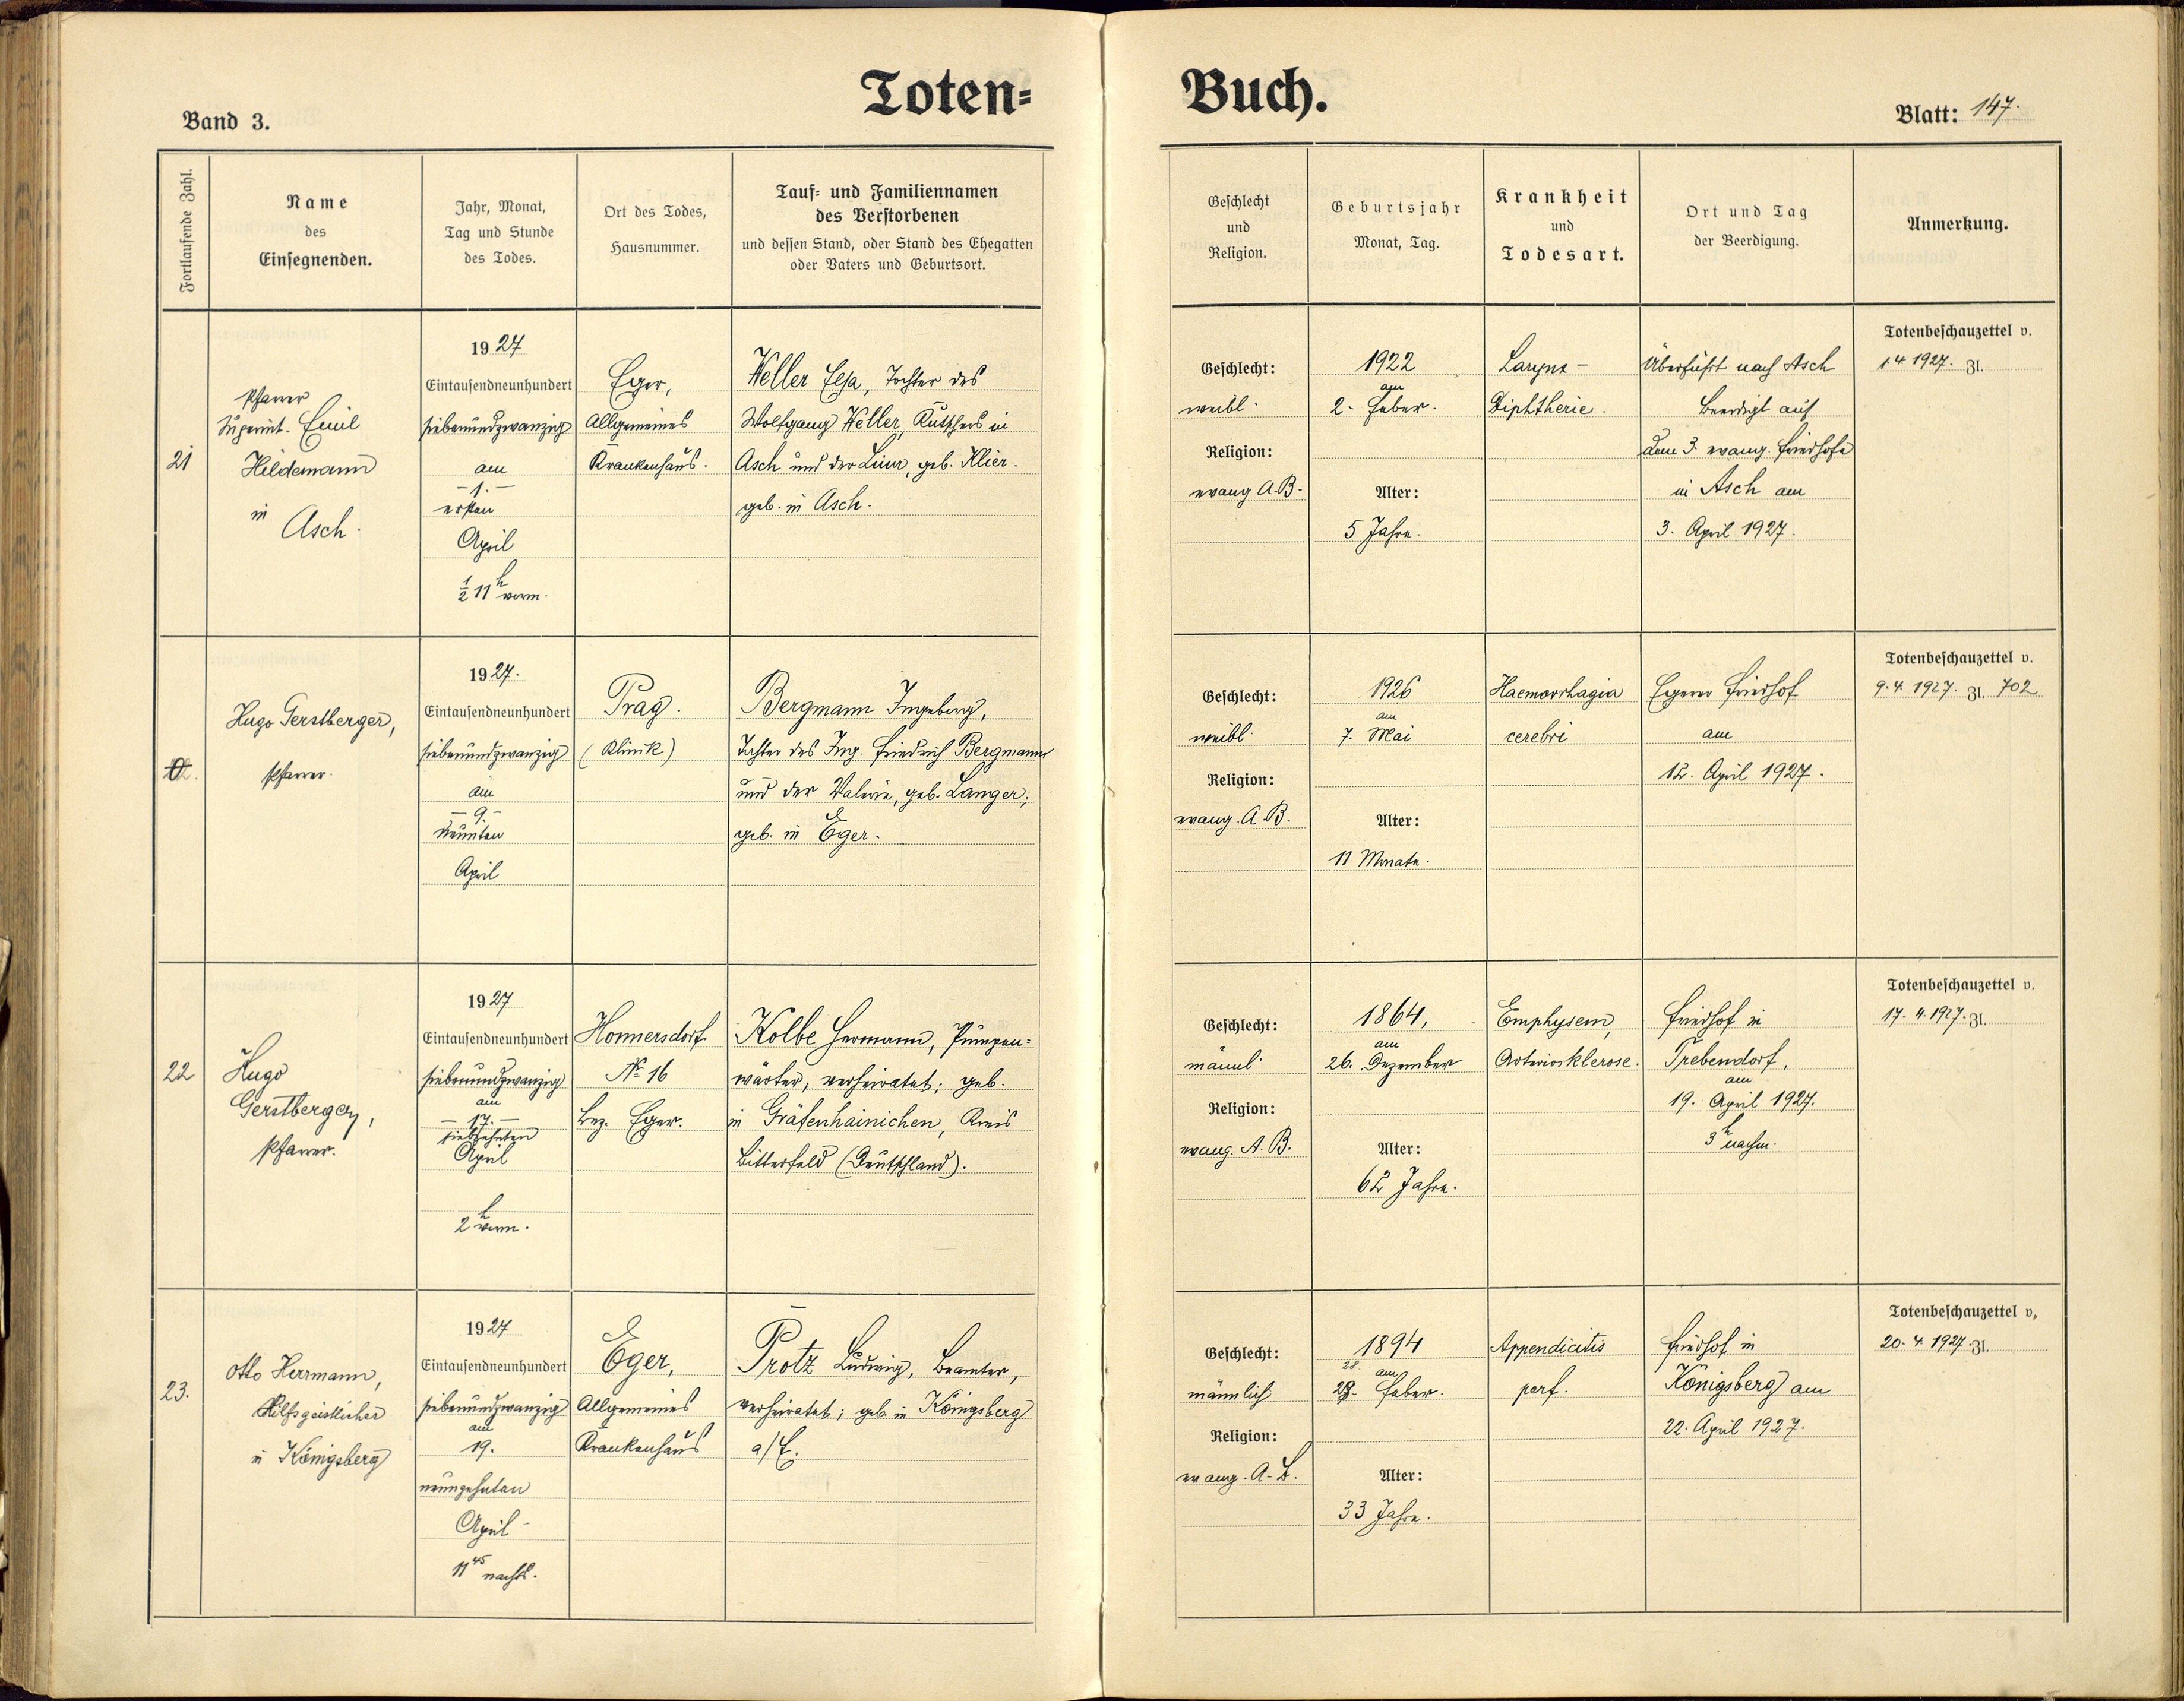 Toten=
Buch.
Band 3.
Blatt: 147.
Fortlaufende Zahl.
Name
des
Einsegnenden.
Jahr, Monat,
Tag und Stunde
des Todes.
Ort des Todes,
Hausnummer.
Tauf= und Familiennamen
des Verstorbenen
und dessen Stand, oder Stand des Ehegatten
oder Vaters und Geburtsort.
Geschlecht
und
Religion.
Geburtsjahr
Monat, Tag.
Krankheit
und
Todesart.
Ort und Tag
der Beerdigung.
Anmerkung.
21
Pfarrer
Superint. Emil
Hildemann
in
Asch.
1927
Eintausendneunhundert
siebenundzwanzig
am
– 1. –
ersten
April
½ 11 h vorm.
Eger,
Allgemeines
Krankenhaus.
Heller Elsa, Tochter des
Wolfgang Heller, Kutschers in
Asch und der Lina, geb. Klier.
geb. in Asch.
Geschlecht:
weibl.
Religion:
evang A.B.
1922
am
2. Feber.
Alter:
5 Jahre.
Larynx –
Diphtherie.
Überführt nach Asch
Beerdigt auf
dem 3. evang. Friedhofe
in Asch am
3. April 1927.
Totenbeschauzettel v.
1 4 1927. Zl.
Hugo Gerstberger,
Pfarrer.
1927.
Eintausendneunhundert
siebenundzwanzig
am
– 9. –
neunten
April
Prag.
(Klinik)
Bergmann Ingeborg,
Tochter des Ing. Friedrich Bergmann
und der Valerie, geb. Langer;
geb. in Eger.
Geschlecht:
weibl.
Religion:
evang. A.B.
1926
am
7. Mai
Alter:
11 Monate.
Haemorrhagia
cerebri
Egerer Friedhof
am
12. April 1927.
Totenbeschauzettel v.
9. 4. 1927. Zl. 702
22
Hugo
Gerstberger,
Pfarrer.
1927
Eintausendneunhundert
siebenundzwanzig
am
– 17. –
siebzehnten
April
2 h vorm.
Honnersdorf
No 16
Bez. Eger.
Kolbe Hermann, Pumpen=
wärter, verheiratet; geb.
in Gräfenhainichen, Kreis
Bitterfeld (Deutschland).
Geschlecht:
männl.
Religion:
evang. A.B.
1864,
am
26. Dezember
Alter:
62 Jahre.
Emphysem,
Arteriosklerose.
Friedhof in
Trebendorf,
am
19. April 1927.
3 h nachm.
Totenbeschauzettel v.
17. 4. 1927. Zl.
23.
Otto Herrmann,
Hilfsgeistlicher
in Königsberg
1927
Eintausendneunhundert
siebenundzwanzig
am
19.
neunzehnten
April
11 45 nachts.
Eger,
Allgemeines
Krankenhaus
Protz Ludwig, Beamter,
verheiratet; geb. in Königsberg
a/E.
Geschlecht:
männlich
Religion:
evang. A.B.
1894
28 am
Feber.
Alter:
33 Jahre.
Appendicitis
perf.
Friedhof in
Königsberg am
22. April 1927.
Totenbeschauzettel v.
20. 4. 1927. Zl.